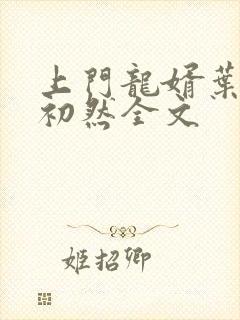 上門龍婿葉
初然全文
姬招卿